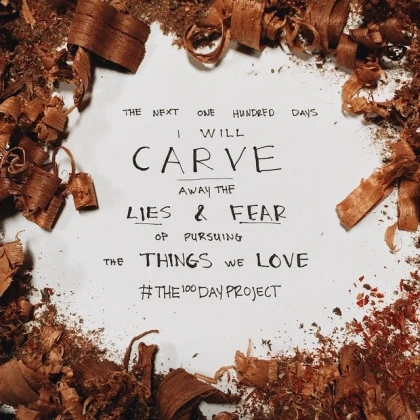 THE NEXT ONE HUNDRED DAYS
I WILL
CARVE
AWAY THE
LIES & FEAR
OF PURSUING
THE THINGS WE LOVE
#THE100DAYPROJECT